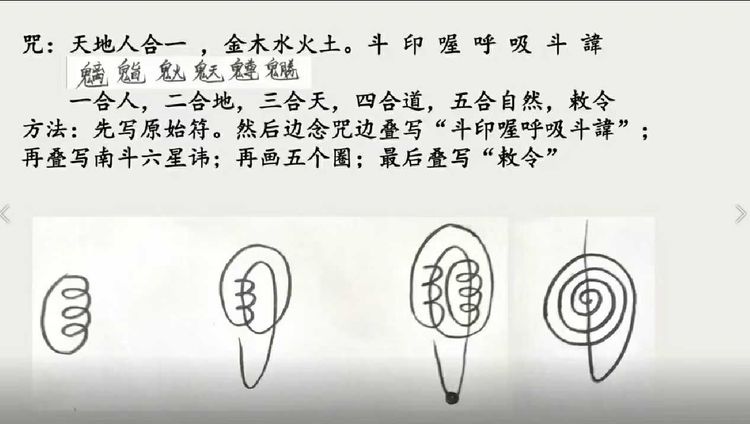 咒：天地人合一 ，金木水火土。斗 印 喔 呼 吸 斗 諱
一合人，二合地，三合天，四合道，五合自然，敕令
方法：先写原始符。然后边念咒边叠写“斗印喔呼吸斗諱”；
再叠写南斗六星讳；再画五个圈；最后叠写“敕令”